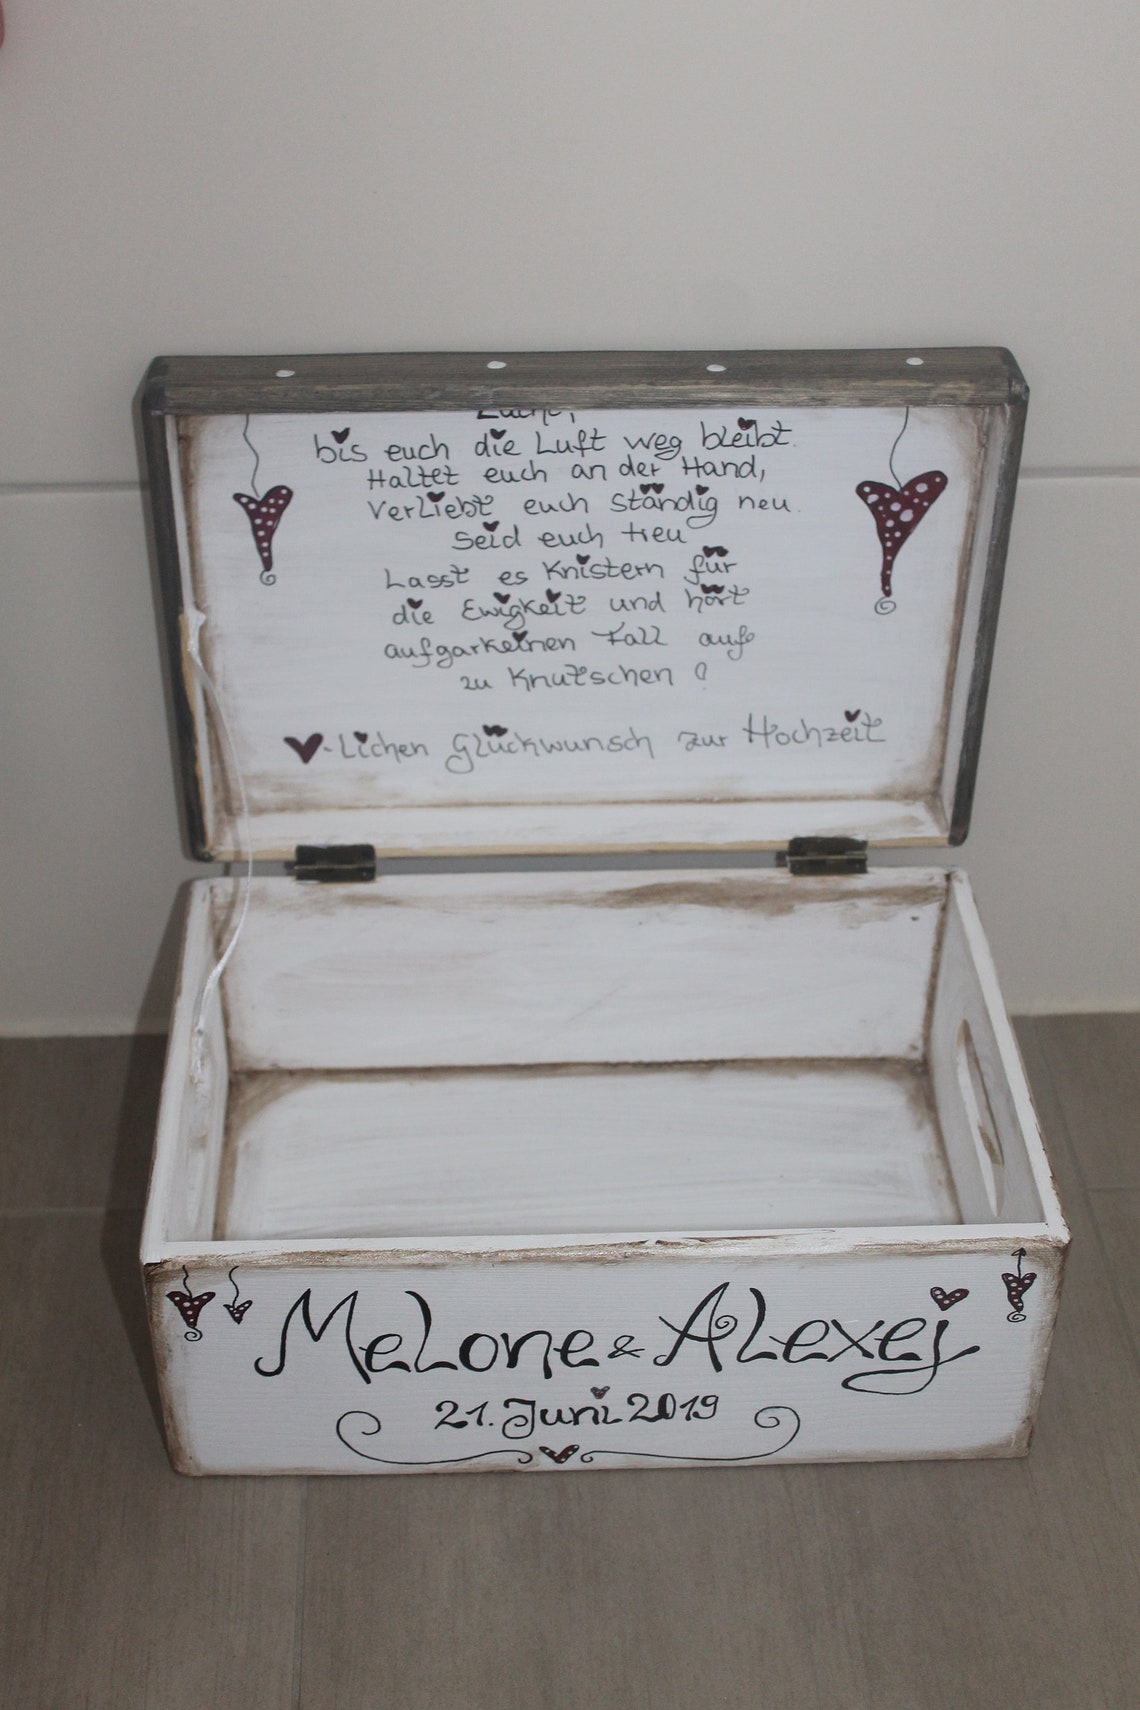 bis euch die Luft weg bleibt.
Haltet euch an der Hand,
Verliebt euch ständig neu.
Seid euch treu
Lasst es Knistern für
die Ewigkeit und hört
aufgarkeinen Fall auf
zu Knutschen !
-Lichen Glückwunsch zur Hochzeit
MeLone & ALexej
21. Juni 2019